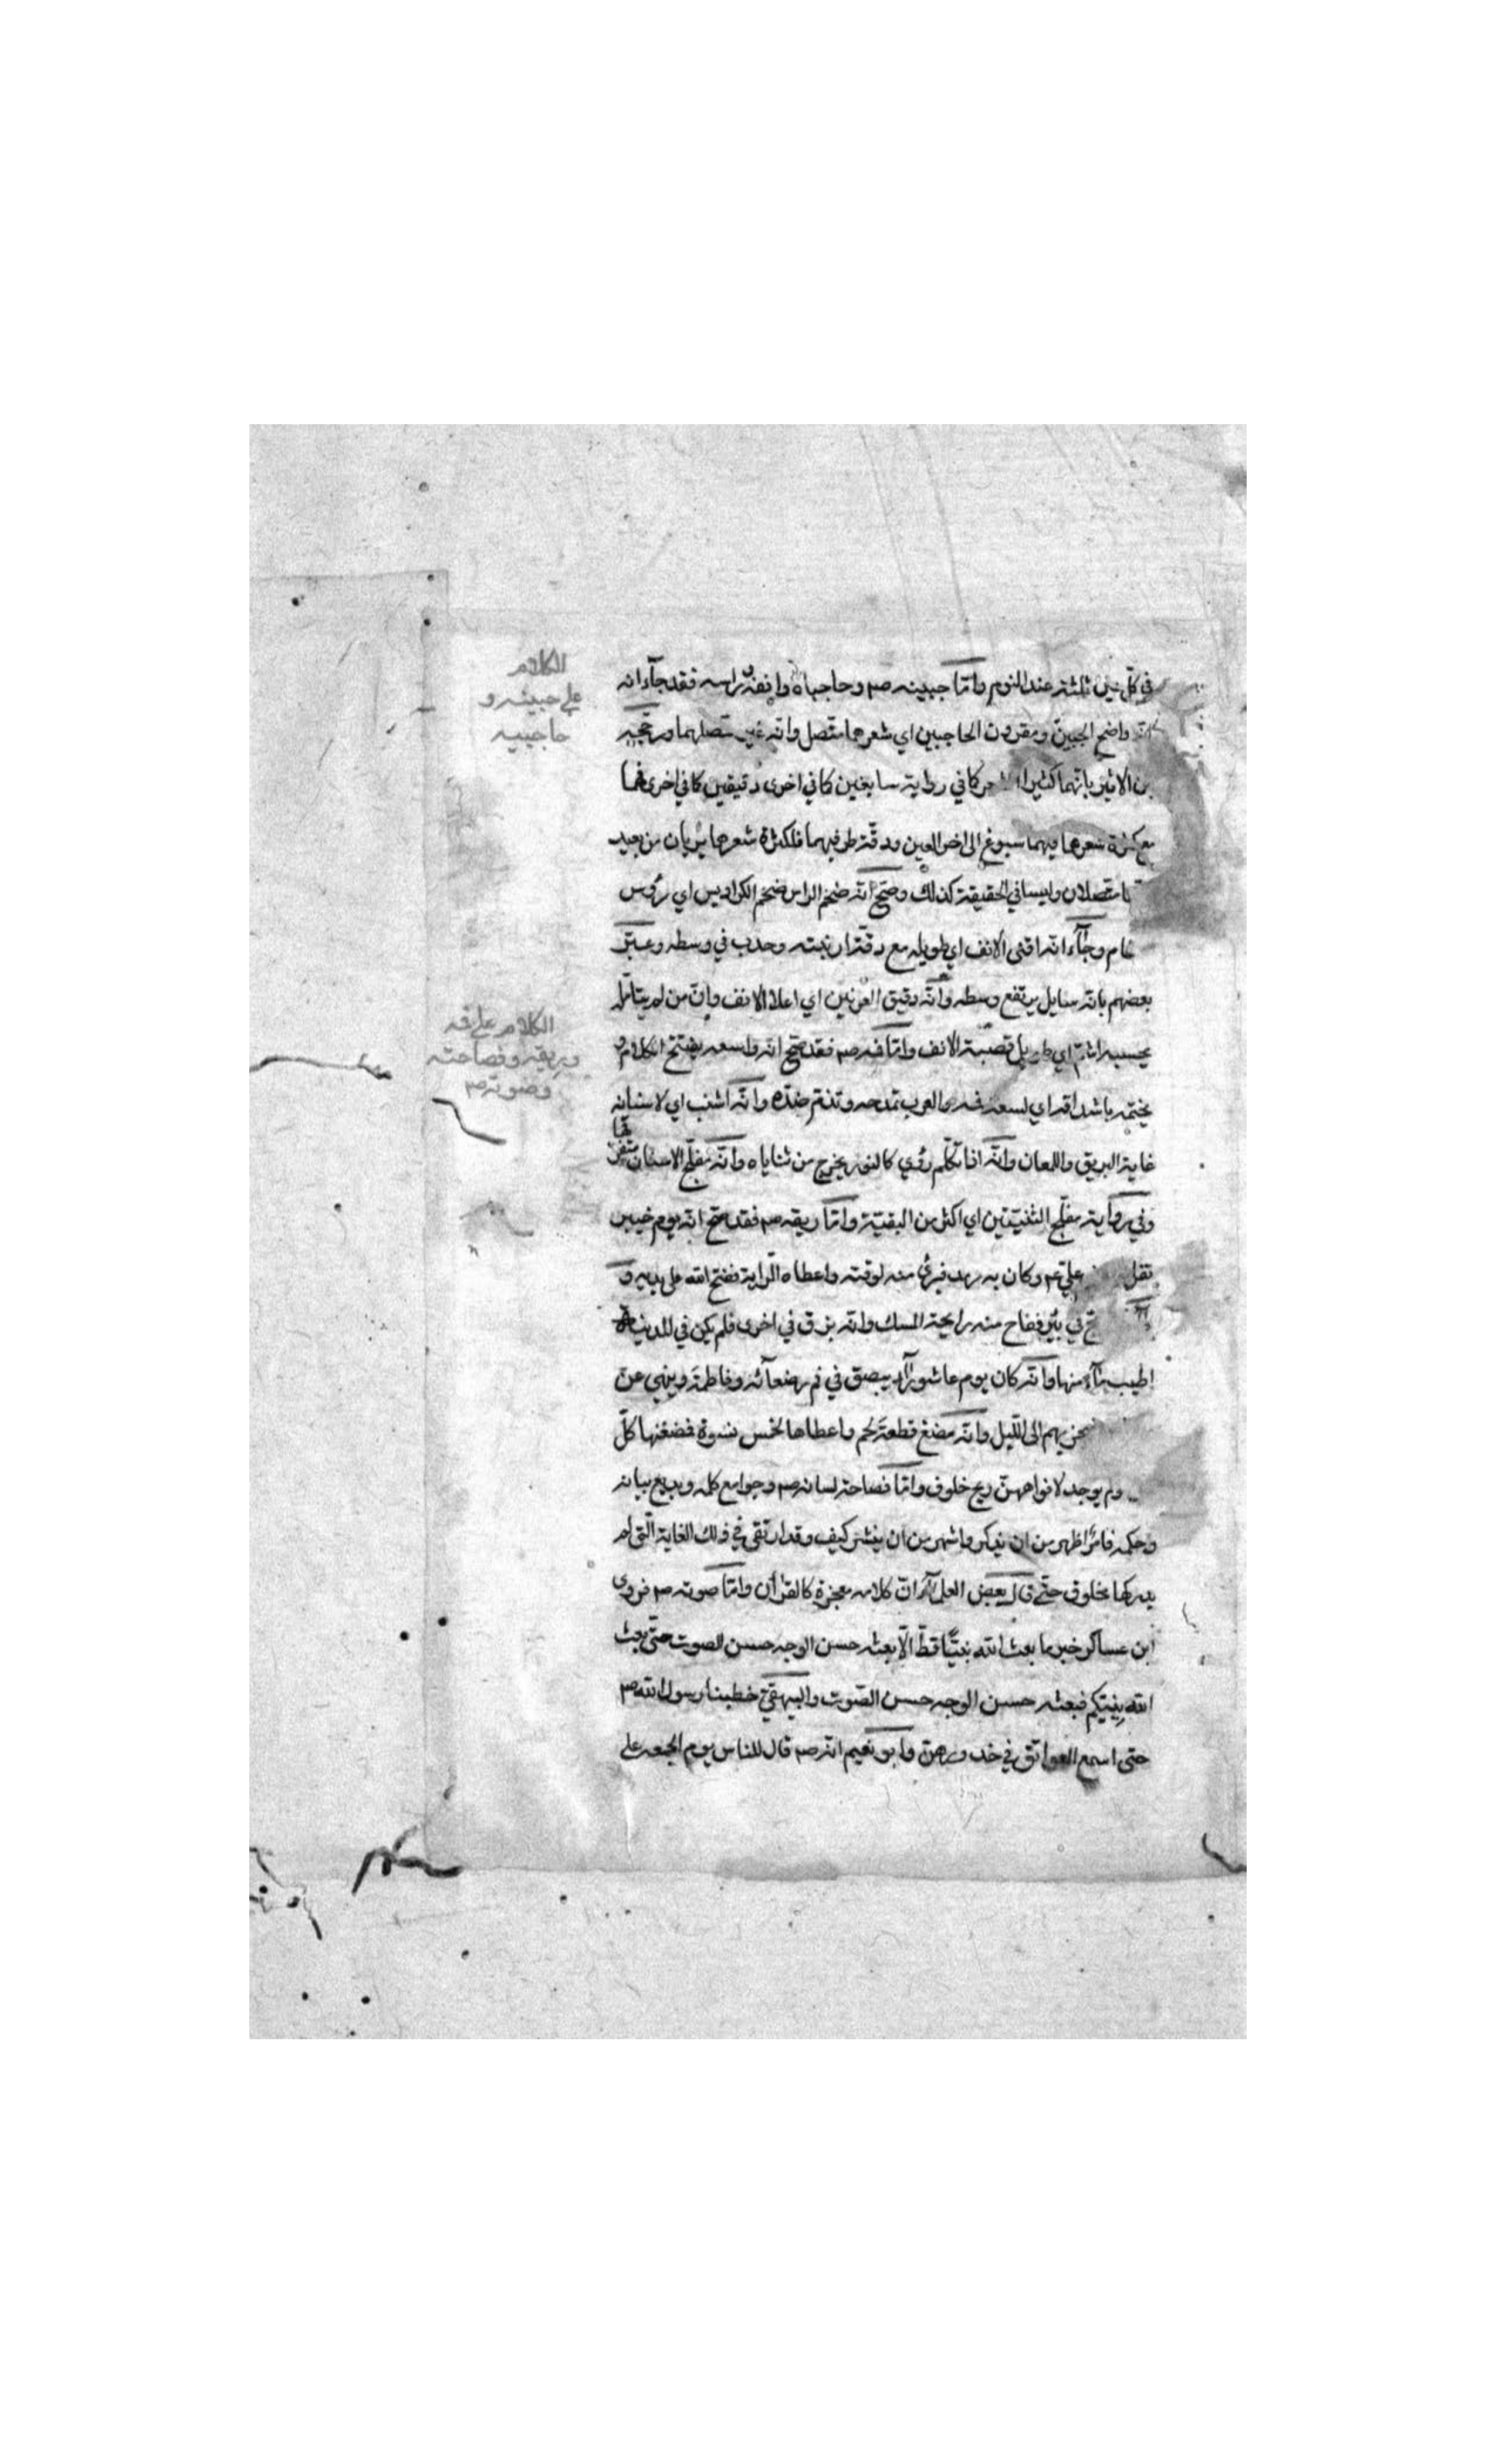 في كل عين ثلثة عند النوم وامّا جبينه صم وحاجباه وانفه وراسه فقد جآء انه
واضح الجبين ومقرون الحاجبين اي شعرهما متصل وانّه غير متصلهما ورجحه
بن الاثير بانّهما كثيرا كما في رواية سابغين كما في اخرى دقيقين كما في اخرى فهما
مع كثرة شعرها فيهما سبوغ الى اخر العين ودقّة طرفيهما فلكثرة شعرهما يريان من بعيد
متصلان وليسا في الحقيقة كذلك وصحّ انّه ضخم الراس ضخم الكراديس اي رؤس
وجآء انّه اقنى الانف اي طويله مع دقّة ارنبته وحدب في وسطه وعبّر
بعضهم بانّه سايل يرتفع وسطه وانّه دقيق العرنين اي اعلا الانف وانّ من لم يتامّله
يحسبه اشمّ اي طويل قصبة الانف وامّا فمه صم فقد صحّ انّه واسعه يفتتح الكلام و
يختمه باشداقه اي لسعة فمه والعرب تمدحه وتذمّ ضدّه وانّه اشنب اي لاسنانه
غاية البريق واللمعان وانّه اذا تكلّم رؤي كالنور يخرج من ثناياه وانّه مفلّج الاسنان متفرقها
وفي رواية مفلّج الثنيّتين اي اكثر من البقيّة وامّا ريقه صم فقد صحّ انّه يوم خيبر
تفل علي عم وكان به رمد فبرئ منه لوقته واعطاه الرّاية ففتح الله على يديه و
في بئر ففاح منه رايحة المسك وانّه بزق في اخرى فلم يكن في المدينة
اطيب مآء منها وانّه كان يوم عاشورآء يبصق في فم رضعآئه وفاطمة وينهى عن
الى اللّيل وانّه مضغ قطعة لحم واعطاها لخمس نسوة فمضغنها كلّ
ولم يوجد لافواههنّ ريح خلوف وامّا فصاحة لسانه صم وجوامع كلمه وبديع بيانه
وحكمه فامرٌ اظهر من ان يذكر واشهر من ان ينشر كيف وقد ارتقى في ذلك الغاية الّتي لم
يدركها مخلوق حتّى قال بعض العلمآء انّ كلامه معجزة كالقرآن وامّا صوته صم فروى
ابن عساكر خبر ما بعث الله نبيًّا قطّ الّا بعثه حسن الوجه حسن الصوت حتّى بعث
الله نبيّكم فبعثه حسن الوجه حسن الصّوت والبيهقيّ خطبنا رسول الله صم
حتى اسمع العواتق في خدورهنّ وابو نعيم انّه صم قال للناس يوم الجمعه على
الكلام
على جبينه و
حاجبيه
الكلام على فمه
وريقه وفصاحته
وصوته صم